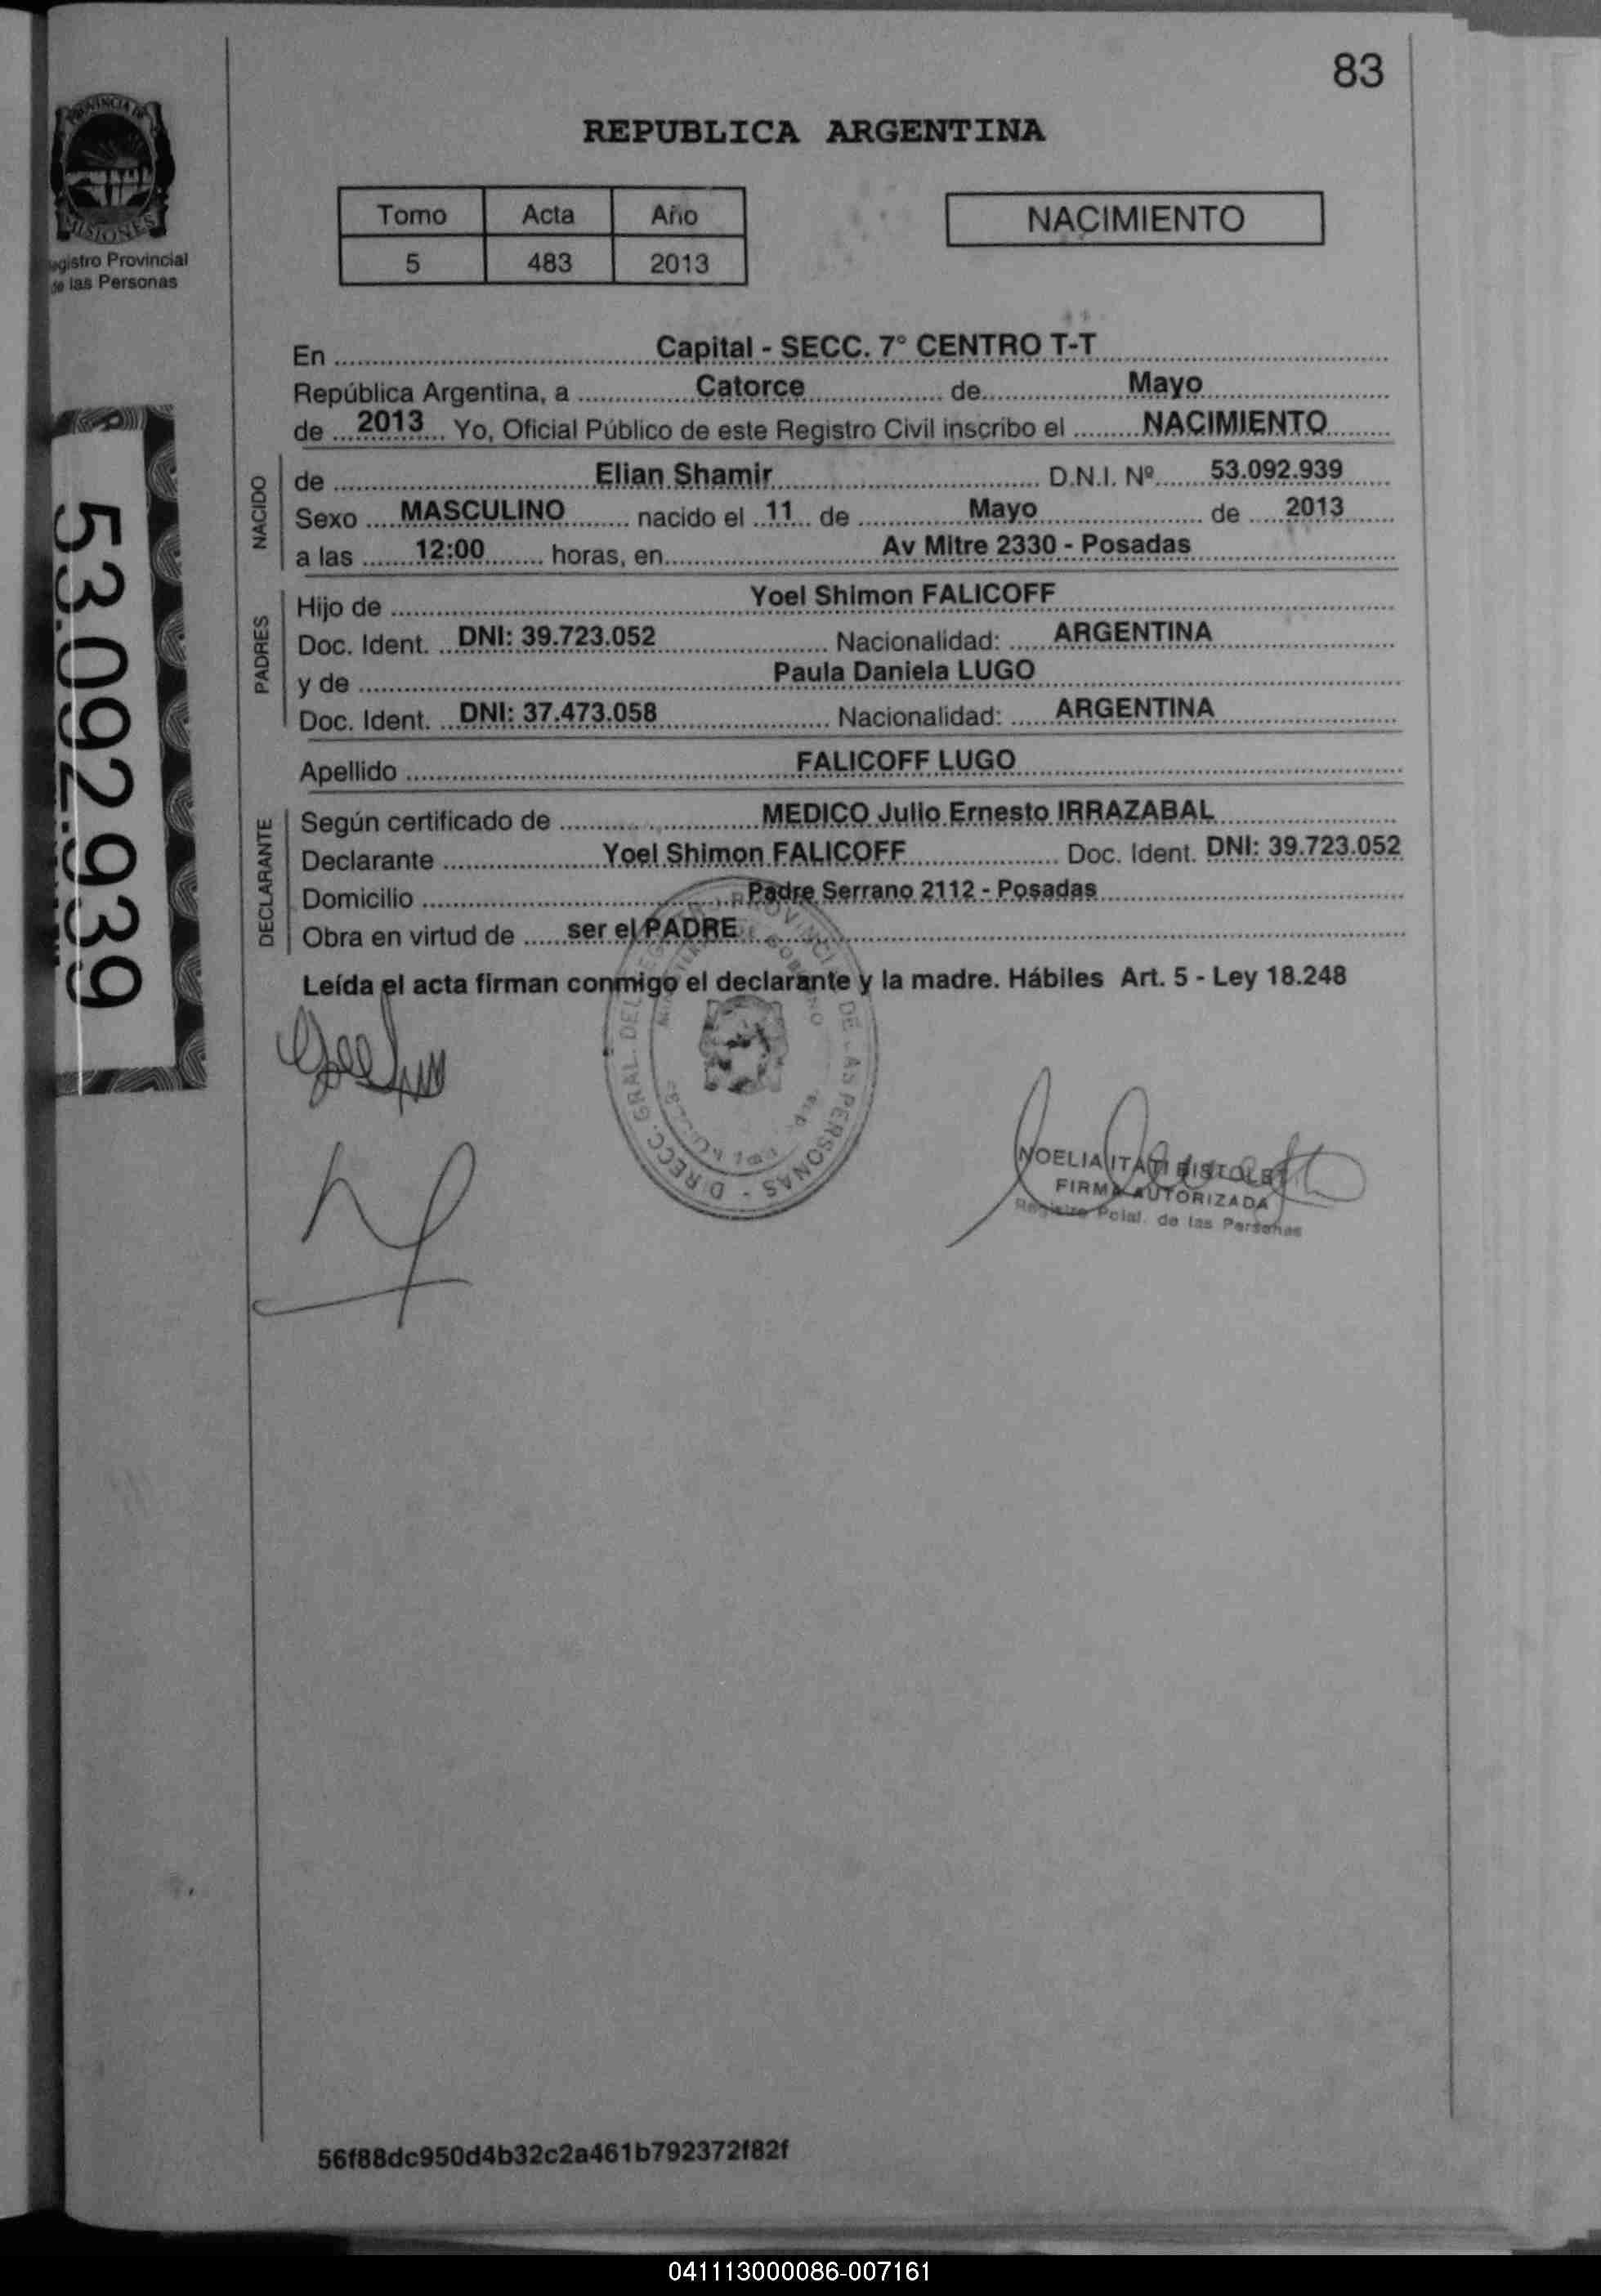 83
PROVINCIA DE
MISIONES
Registro Provincial
de las Personas
REPUBLICA ARGENTINA
Tomo Acta Año
5 483 2013
NACIMIENTO
En Capital - SECC. 7° CENTRO T-T
República Argentina, a Catorce de Mayo
de 2013 Yo, Oficial Público de este Registro Civil inscribo el NACIMIENTO
NACIDO
de Elian Shamir D.N.I. Nº 53.092.939
Sexo MASCULINO nacido el 11 de Mayo de 2013
a las 12:00 horas, en Av Mitre 2330 - Posadas
PADRES
Hijo de Yoel Shimon FALICOFF
Doc. Ident. DNI: 39.723.052 Nacionalidad: ARGENTINA
y de Paula Daniela LUGO
Doc. Ident. DNI: 37.473.058 Nacionalidad: ARGENTINA
Apellido FALICOFF LUGO
DECLARANTE
Según certificado de MEDICO Julio Ernesto IRRAZABAL
Declarante Yoel Shimon FALICOFF Doc. Ident. DNI: 39.723.052
Domicilio Padre Serrano 2112 - Posadas
Obra en virtud de ser el PADRE
Leída el acta firman conmigo el declarante y la madre. Hábiles Art. 5 - Ley 18.248
53.092.939
DIRECC. GRAL. DEL PROVINCI DE LAS PERSONAS
NOELIA ITATI
FIRMA AUTORIZADA
Registro Pcial. de las Personas
56f88dc950d4b32c2a461b792372f82f
041113000086-007161